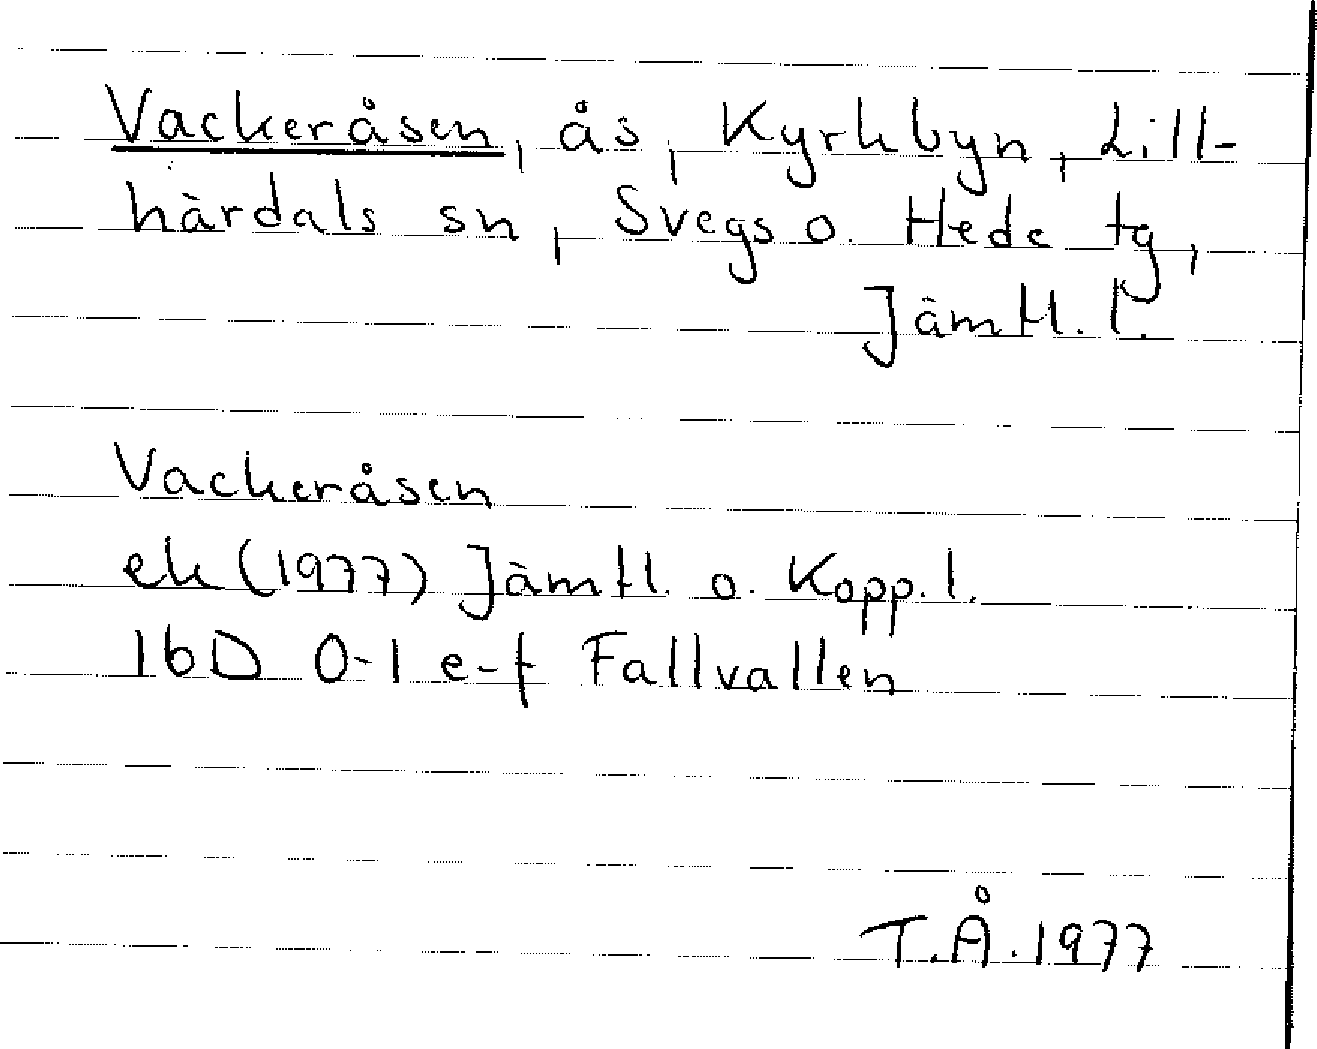 Vackeråsen, ås, Kyrkbyn, Lill-
härdals sn, Svegs o. Hede tg,
Jämtl. l.
Vackeråsen
ek (1977) Jämtl. o. Kopp. l.
16D 0-1 e-f Fallvallen
T.Å. 1977